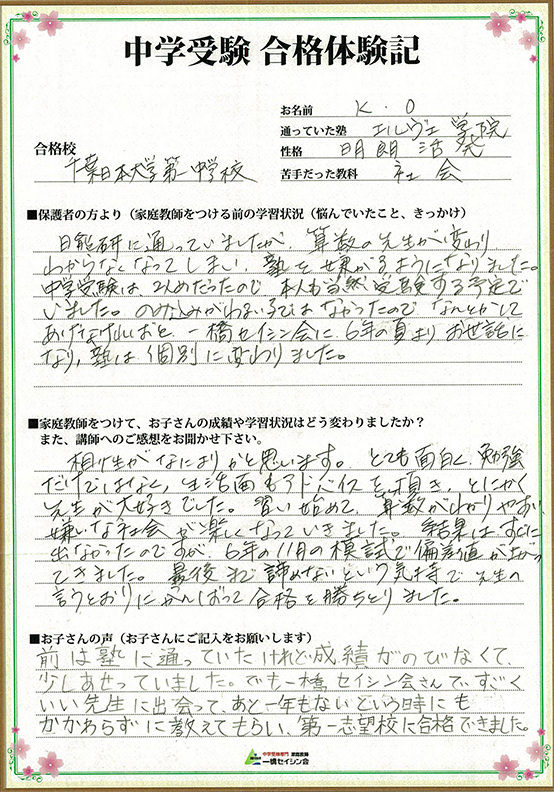 中学受験 合格体験記
お名前 K.O
通っていた塾 エルヴェ学院
性格 明朗活発
苦手だった教科 社会
合格校
千葉日本大学第一中学校
■保護者の方より（家庭教師をつける前の学習状況（悩んでいたこと、きっかけ）
日能研に通っていましたが、算数の先生が変わり
わからなくなってしまい、塾を嫌がるようになりました。
中学受験は、2人めだったので 本人も当然受験する予定で
いました。のみこみがわるい子ではなかったので、なんとかして
あげなければと、一橋セイシン会に6年の夏よりお世話に
なり、塾は個別に変わりました。
■家庭教師をつけて、お子さんの成績や学習状況はどう変わりましたか？
また、講師へのご感想をお聞かせ下さい。
相性がなによりかと思います。とても面白く、勉強
だけではなく、生活面もアドバイスを頂き、とにかく
先生が大好きでした。習い始めて、算数がわかりやすい、
嫌いな社会が楽しくなっていきました。結果はすぐに
出なかったのですが、6年の11月の模試で偏差値が上がっ
てきました。最後まで諦めないという気持で先生の
言うとおりにがんばって合格を勝ちとりました。
■お子さんの声（お子さんにご記入をお願いします）
前は塾に通っていたけれど成績がのびなくて、
少しあせっていました。でも一橋セイシン会さんで、すごく
いい先生に出会って、あと一年もないという時にも
かかわらずに教えてもらい、第一志望校に合格できました。
中学受験専門 家庭教師
一橋セイシン会